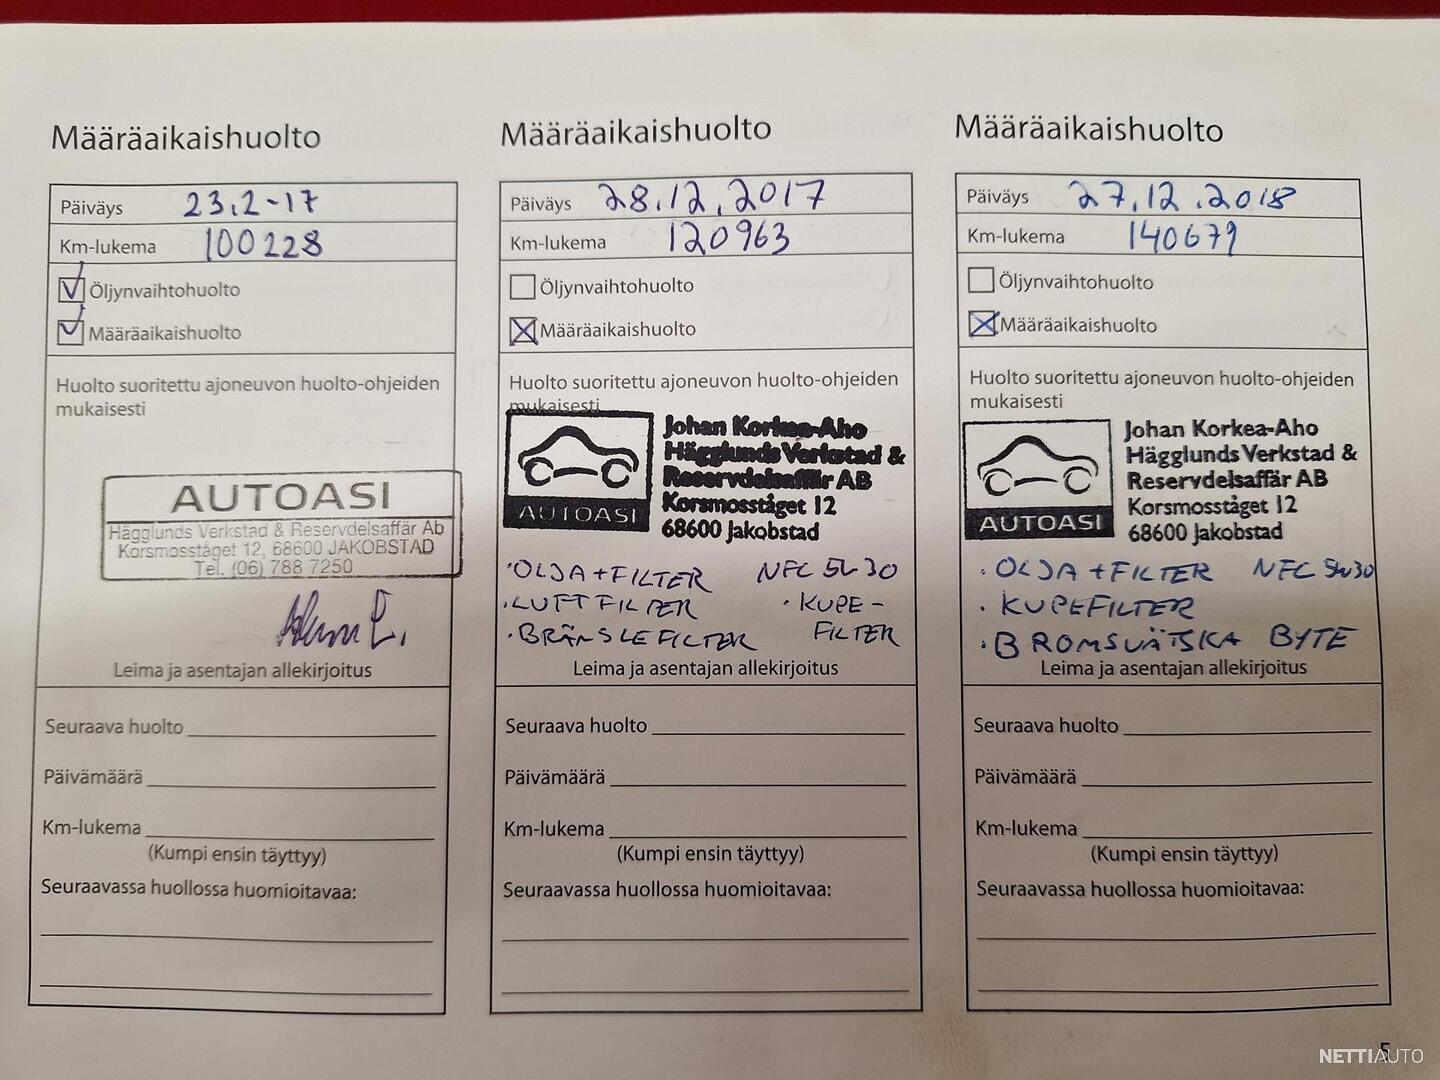 Määräaikaishuolto
Päiväys 23.2-17
Km-lukema 100228
Öljynvaihtohuolto
Määräaikaishuolto
Huolto suoritettu ajoneuvon huolto-ohjeiden
mukaisesti
AUTOASI
Hägglunds Verkstad & Reservdelsaffär Ab
Korsmosståget 12, 68600 JAKOBSTAD
Tel. (06) 788 7250
Leima ja asentajan allekirjoitus
Seuraava huolto
Päivämäärä
Km-lukema
(Kumpi ensin täyttyy)
Seuraavassa huollossa huomioitavaa:
Määräaikaishuolto
Päiväys 28.12.2017
Km-lukema 120963
Öljynvaihtohuolto
Määräaikaishuolto
Huolto suoritettu ajoneuvon huolto-ohjeiden
mukaisesti
AUTOASI
Johan Korkea-Aho
Hägglunds Verkstad &
Reservdelsaffär AB
Korsmosståget 12
68600 Jakobstad
• OLJA + FILTER NFC 5W30
• LUFTFILTER • KUPE-
• BRÄNSLEFILTER FILTER
Leima ja asentajan allekirjoitus
Seuraava huolto
Päivämäärä
Km-lukema
(Kumpi ensin täyttyy)
Seuraavassa huollossa huomioitavaa:
Määräaikaishuolto
Päiväys 27.12.2018
Km-lukema 140679
Öljynvaihtohuolto
Määräaikaishuolto
Huolto suoritettu ajoneuvon huolto-ohjeiden
mukaisesti
AUTOASI
Johan Korkea-Aho
Hägglunds Verkstad &
Reservdelsaffär AB
Korsmosståget 12
68600 Jakobstad
• OLJA + FILTER NFC 5W30
• KUPEFILTER
• BROMSVÄTSKA BYTE
Leima ja asentajan allekirjoitus
Seuraava huolto
Päivämäärä
Km-lukema
(Kumpi ensin täyttyy)
Seuraavassa huollossa huomioitavaa:
5
NETTIAUTO